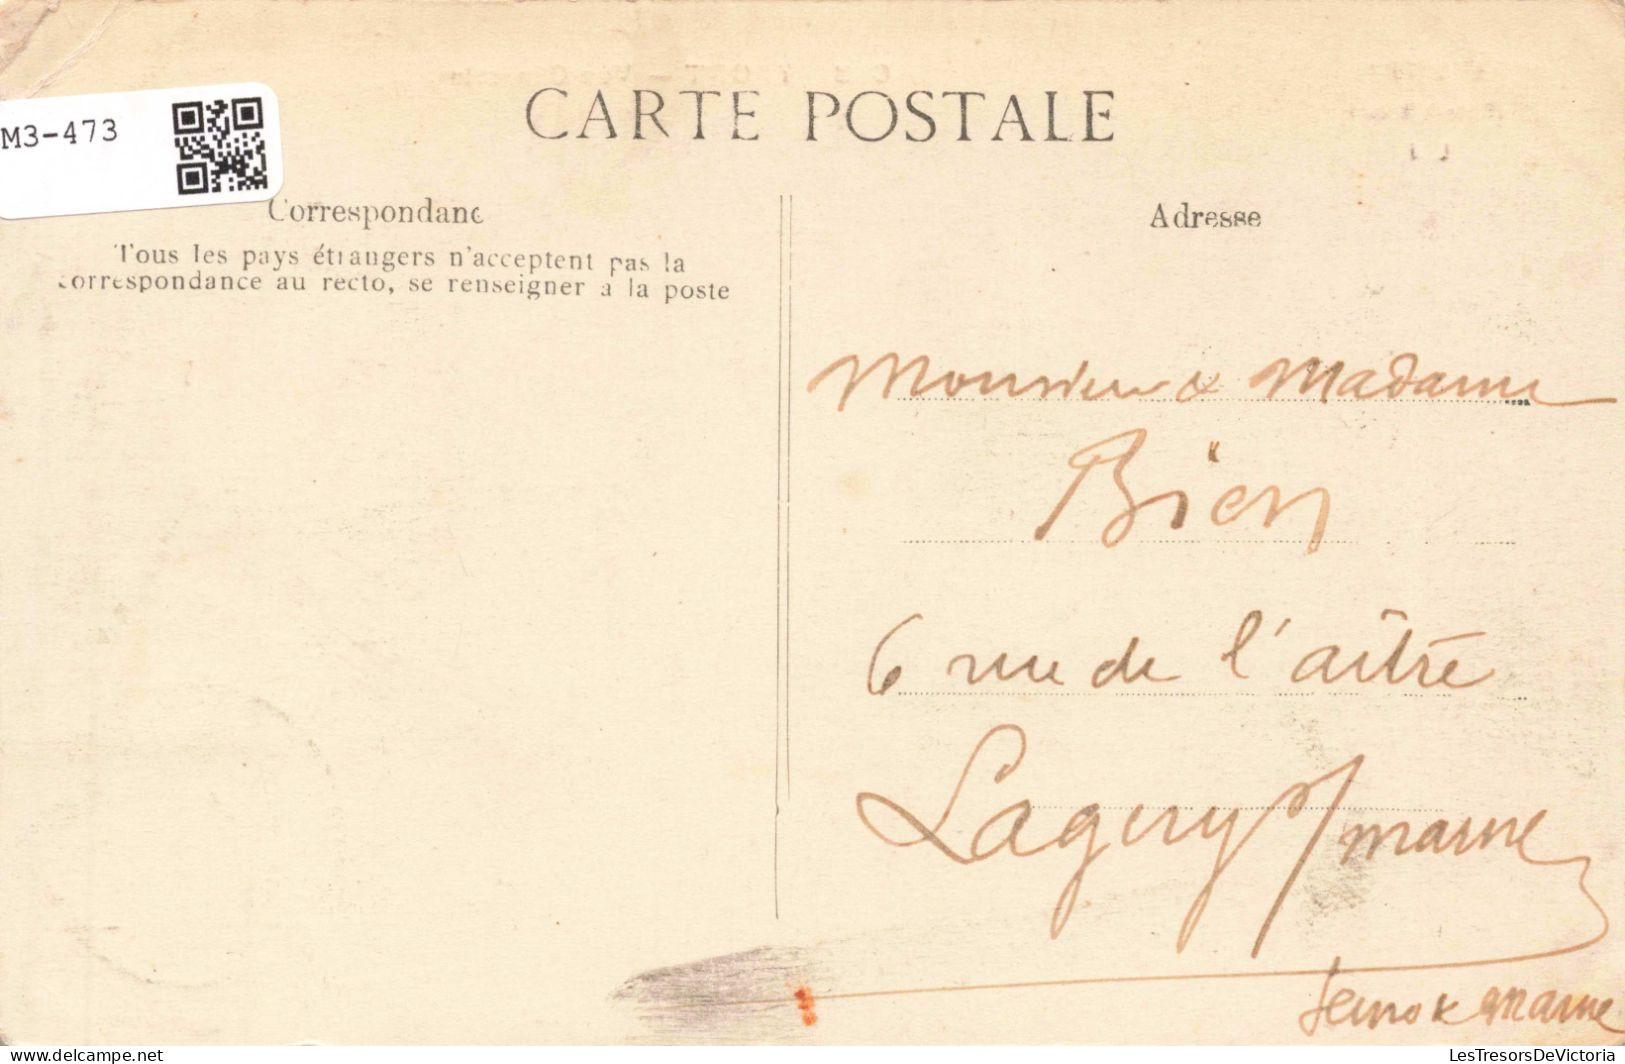 M3-473
CARTE POSTALE
Correspondanc
Tous les pays étrangers n'acceptent pas la
correspondance au recto, se renseigner à la poste
Adresse
Monsieur & Madame
Bien
6 rue de l'aître
Lagny s/ marne
Seine & Marne
LesTresorsDeVictoria